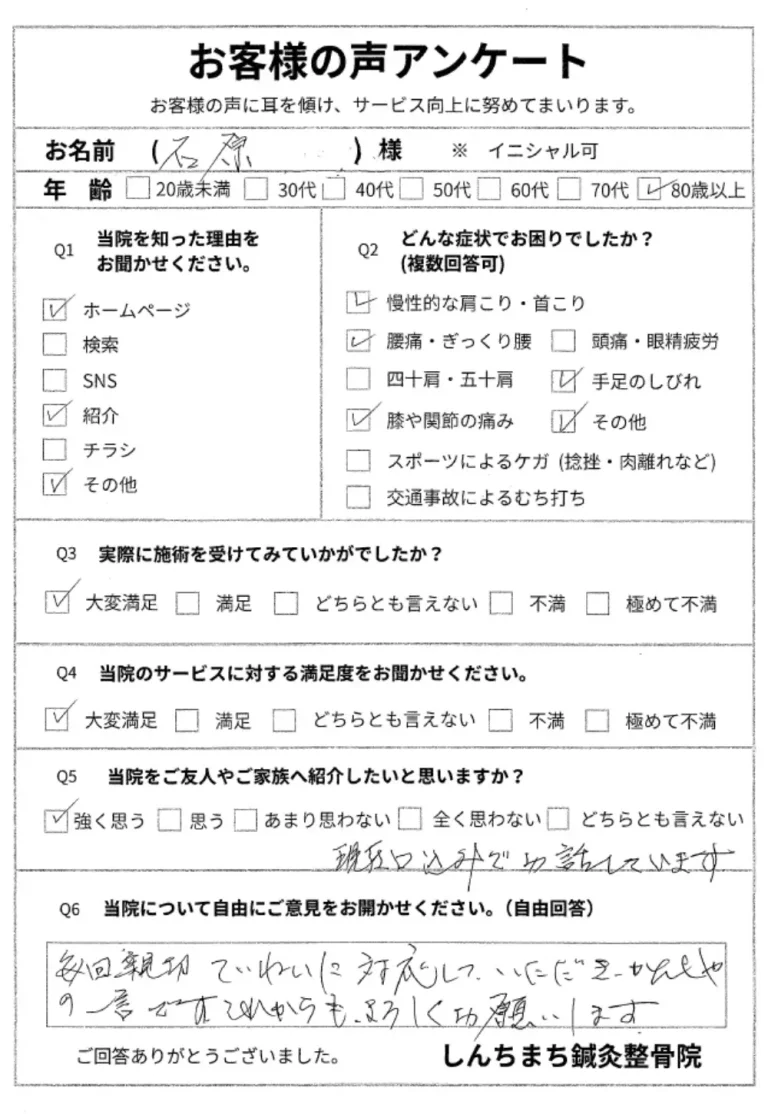 お客様の声アンケート
お客様の声に耳を傾け、サービス向上に努めてまいります。
お名前 (石原) 様 ※ イニシャル可
年 齢 □20歳未満 □30代 □40代 □50代 □60代 □70代 ☑80歳以上
Q1 当院を知った理由を
お聞かせください。
☑ ホームページ
□ 検索
□ SNS
☑ 紹介
□ チラシ
☑ その他
Q2 どんな症状でお困りでしたか？
(複数回答可)
☑ 慢性的な肩こり・首こり
☑ 腰痛・ぎっくり腰 □ 頭痛・眼精疲労
□ 四十肩・五十肩 ☑ 手足のしびれ
☑ 膝や関節の痛み ☑ その他
□ スポーツによるケガ (捻挫・肉離れなど)
□ 交通事故によるむち打ち
Q3 実際に施術を受けてみていかがでしたか？
☑ 大変満足 □ 満足 □ どちらとも言えない □ 不満 □ 極めて不満
Q4 当院のサービスに対する満足度をお聞かせください。
☑ 大変満足 □ 満足 □ どちらとも言えない □ 不満 □ 極めて不満
Q5 当院をご友人やご家族へ紹介したいと思いますか？
☑強く思う □思う □あまり思わない □全く思わない □どちらとも言えない
現在口込みでお話しています
Q6 当院について自由にご意見をお開かせください。（自由回答）
毎回親切 ていねいに 対応して いただき かんしゃ
の一言ですこれからもよろしくお願いします
ご回答ありがとうございました。
しんちまち鍼灸整骨院